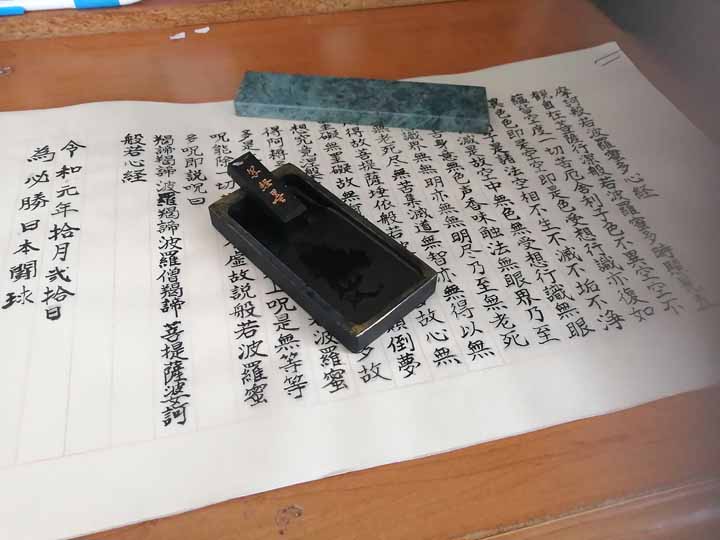 摩訶般若波羅蜜多心経
観自在菩薩行深般若波羅蜜多時照見五
蘊皆空度一切苦厄舎利子色不異空空不
異色色即是空空即是色受想行識亦復如
是諸法空相不生不滅不垢不浄
是故空中無色無受想行識無眼
舌身意無色声香味触法無眼界乃至
識界無無明亦無無明尽乃至無老死
無老死尽無苦集滅道無智亦無得以無
得故菩提薩埵依般若波 故心無
罣礙無罣礙故無 顛倒夢
想究竟涅 多故
得阿耨 波羅蜜
多是 上呪是無等等
呪能除一切 虚故説般若波羅蜜
多呪即説呪曰
羯諦羯諦波羅羯諦波羅僧羯諦菩提薩婆訶
般若心経
令和元年拾月弐拾日
為必勝日本闘球